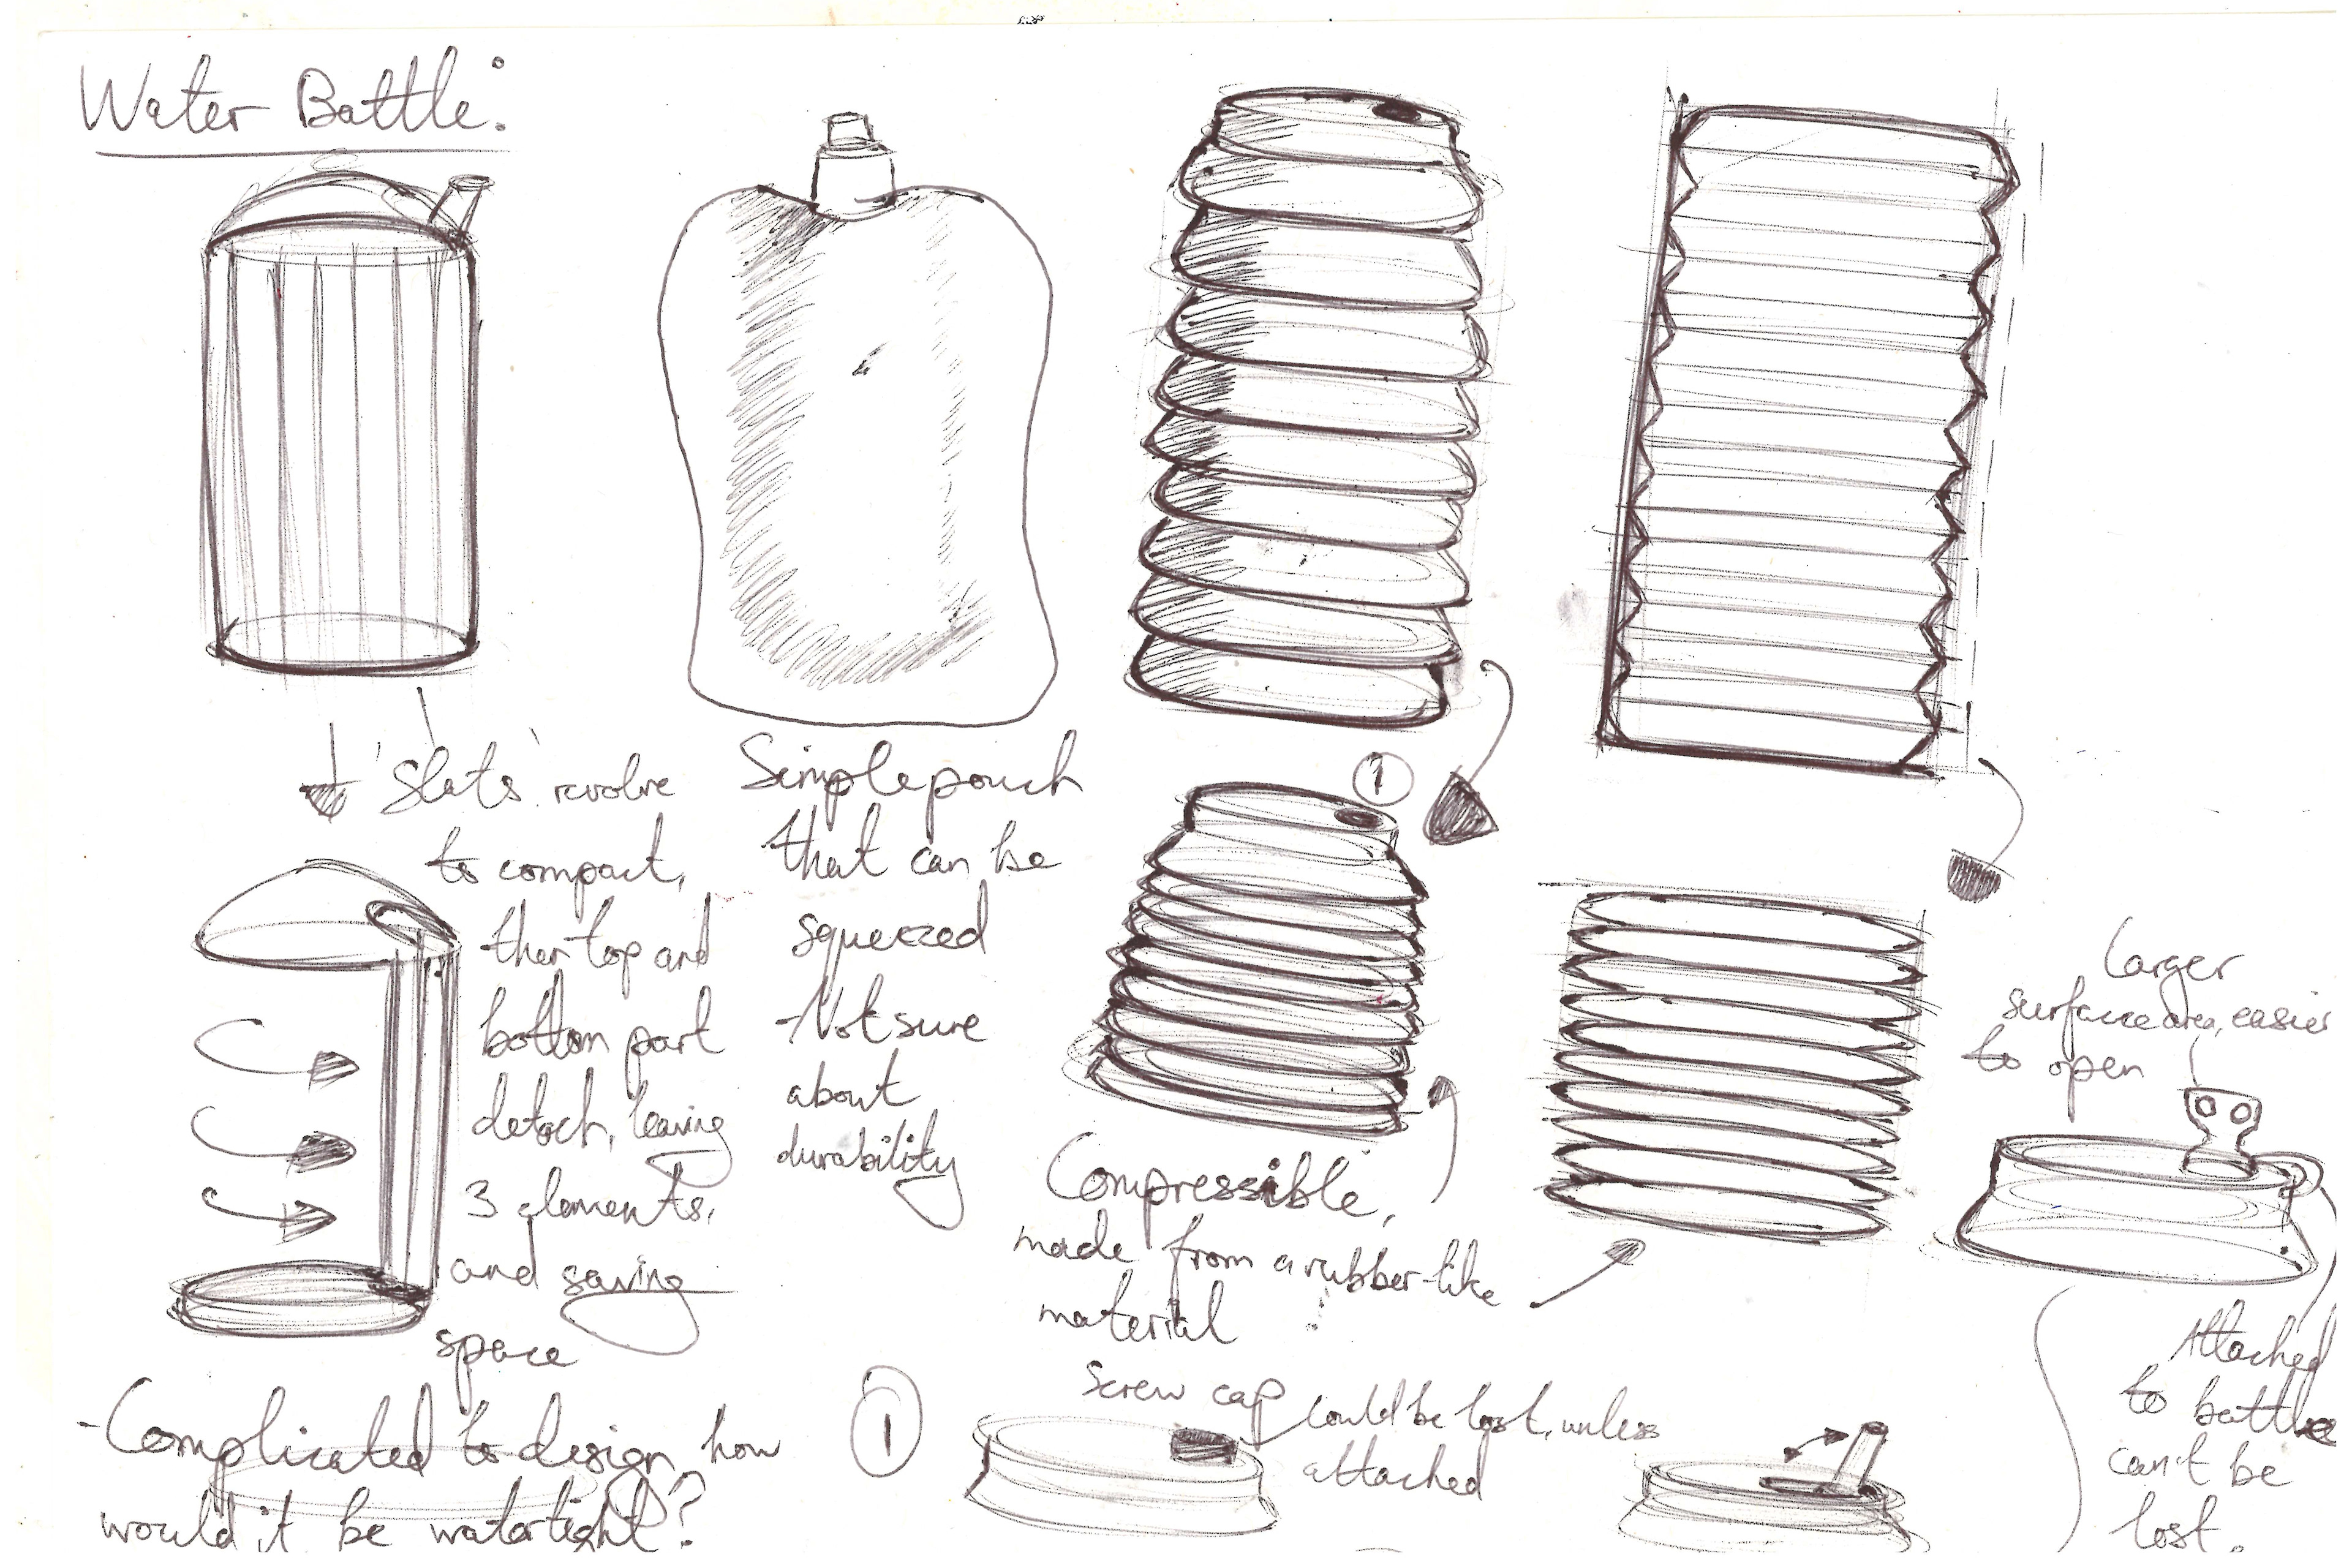 Water Bottle:
'Slats' revolve
to compact,
then top and
bottom part
detach, leaving
3 elements,
and saving
space
-Complicated to design, how
would it be watertight?
Simple pouch
that can be
squeezed
-Not sure
about
durability
1
Compressible,
made from a rubber-like
material
Larger
surface area, easier
to open
1
Screw cap
Could be lost, unless
attached
Attached
to bottle
can't be
lost.